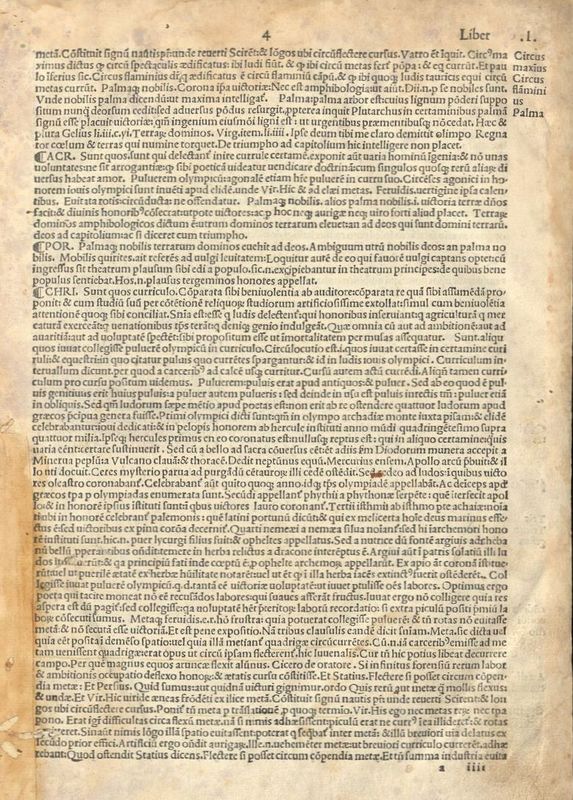 4 Liber .I.
metã. Cõstituit signũ nautis pr̃: unde reuerti Scirẽt: & lõgos ubi circũflectere cursus. Vatro ẽt iquit. Circ⁹ma
ximus dictus φ circũ spectaculis ædificatus: ibi ludi fiũt. & φ ibi circũ metas fert̃ põpa: & eq̃ currũt. Et pau
lo iferius sic. Circus flaminius dr̃ q ædificatus ẽ circũ flaminiũ cãpũ. & φ ibi quoq; ludis tauricis equi circũ
metas currũt. Palmaq; nobilis. Corona ipa uictoriæ: Nec est amphibologia: ut aiũt. Dii.n.p se nobiles sunt.
Vnde nobilis palma dicenda: ut maxima intelligat̃. Palma: palma arbor est: cuius lignum põderi suppo
situm nunq̃ deorsum cedit: sed aduersus põdus resurgit.
signũ eẽ placuit uictoriæ: qm̃ ingenium eiusmõi ligni est: ut urgentibus præmentibusq; nõcedat. Hæc &
plura Gelius li.iii.c.yi. Terraȝ dominos. Virg.item.li.iiii. Ipse deum tibi me claro demittit olimpo Regna
tor cœlum & terras qui numine torquet. De triumpho ad capitolium hic intelligere non placet.
¶ACR. Sunt quos. sunt qui delectant̃ inire currule certamẽ. exponit aũt uaria hominũ igenia: & nõ unas
uoluntates: ne sit arrogantiæ: φ sibi poeticã uideatur uendicare doctrinã: cum singulos quosq; rerũ aliaȝ di
uersus habeat amor. Puluerem olympicũ: agonalẽ etiam hr̃e puluerẽ in curru suo. Circẽses agonici in ho
norem iouis olympici sunt inuẽti apud elidẽ. unde Vir. Hic & ad elæi metas. Feruidis. uertigine ipsa calen
tibus. Euitata rotis: circũducta: ne offendatur. Palmaq; nobilis. alios palma nobilis.i. uictoria terræ dños
facit: & diuinis honorib⁹ cõsecrat: utpote uictores: ac p hoc neq; aurigæ neq; uiro forti aliud placet. Terraȝ
dominos amphibologicos dictum ẽ: utrum dominos terrarum eleuet: an ad deos qui sunt domini terrarũ.
deos ad capitolium: ac si diceret cum triumpho.
¶POR. Palmaq; nobilis terratum dominos euehit ad deos. Ambiguum utrũ nobilis deos: an palma no
bilis. Mobilis quirites. ait referẽs ad uulgi leuitatem: Loquitur autẽ de eo qui fauorẽ uulgi captans optet: cũ
ingressus sit theatrum plausum sibi edi a populo. sic.n. excipiebantur in theatrum principes: de quibus bene
populus sentiebat. Hos.n. plausus tergeminos honores appellat.
¶CHRI. Sunt quos curriculo. Cõparata sibi beniuolentia ab auditore: cõparata re quã sibi assumẽdã pro
ponit: & cum studiũ suũ per cõtẽtionẽ reliquoȝ studiorum artificiosissime extollat: simul cum beniuolẽtia
attentionẽ quoq; sibi conciliat. Snĩa est: eẽ q ludis delectent̃: qui honoribus inseruiant: q agriculturã q mer
caturã exerceãt: q uenationibus tp̃s terãt: q deniq; genio indulgeãt. Quæ omnia cũ aut ad ambitionẽ: aut ad
auaritiã: aut ad uoluptatẽ spectẽt: sibi propositum esse ut immortalitatem per musas assequatur. Sunt. aliqui
quos iuuat collegisse puluerẽ olympicũ in curriculo. Circũlocutio est.i. quos iuuat certasse in certamine curri
ruli: & equestri: in quo citatur puluis quo currẽtes spargantur: & id in ludis iouis olympici. Curriculum in-
teruallum dicunt. per quod a carcerib⁹ ad calcẽ usq; curritur. Cursũ autem actũ curredi. Aliqñ tamen curri
culum pro cursu positum uidemus. Puluerem: puluis erat apud antiquos: & puluer. Sed ab eo quod ẽ pul
uis genitiuus erit huius puluis: a puluer autem pulueris: sed deinde in usu est puluis in rectis tm̃: puluer etiã
in obliquis. Sed qm̃ ludorum sæpe mẽtio apud poetas est: non erit ab re ostendere quattuor ludorum apud
græcos p̃cipua genera fuisse. Primi olympici dicti sunt: qm̃ in olympo archadiæ monte iuxta pisam: & elidẽ
celebrabantur: ioui dedicati: & in pelopis honorem ab hercule instituti anno mũdi quadringẽtesimo supra
quattuor milia. Ipseq; hercules primus en eo coronatus est: nullusq; reptus est: qui in aliquo certamine: quis
uaria eẽnt: certare sustinuerit. Sed cũ a bello ad sacra cõuersus cẽtẽt adiis s̃m Diodorum munera accepit a
Minerua peplũ: a Vulcano clauã: & thoracẽ. Dedit neptunus equũ. Mercurius ensem. Apollo arcũ p̃buit: & il
lo uti docuit. Ceres mysterio parta ad purgãdũ cẽtauroȝ: illi cedẽ ostẽdit. Sed redeo ad ludos: i quibus uicto
res oleastro coronabant̃. Celebrabant̃ aũt quito quoq; anno. idq; tp̃s olympiadẽ appellabãt. Ac deiceps apd
græcos tpa p olympiadas enumerata sunt. Secũdi appellant̃ phythii a phythonæ serpẽte: quẽ iterfecit apol
lo: & in honorẽ ipsius istituti sunt: ã qbus uictores lauro coronant̃. Tertii isthmii ab isthmo pte achaiæ: inoia
tubi in honorẽ celebrant̃ palemonis: quẽ latini portunũ dicũt: & qui ex melicerta hoſe deus marinus effe-
ctus ẽ: sed uictoribus ex pinu corõa decernit̃. Quarti nemæi a nemæa silua noiant̃: sed hi iarchemori hono
rẽ instituti sunt. hic.n. puer lycurgi filius fuit: & opheltes appellatus. Sed a nutrice dũ fontẽ argiuis adrhebã
nũ bellũ pperantibus oñdit: temere in herba relictus a dracone interẽptus ẽ. Argiui aũt i patris solatiũ illi lu
dos ĩstituerũt: & ga principiũ fati inde cœptũ ẽ. p ophelte archemoȝ appellarũt. Ex apio aũt coronã istitue-
rũt: uel ut puerilẽ ætatẽ ex herbæ hũilitate notarẽt: uel ut ẽt φ i illa herba iacẽs extinct⁹ fuerit ostẽderẽt. Col
legisse iuuat puluerẽ olympicũ. q.d. tantã eẽ uictoriæ uoluptatẽ: ut iuuet puluiſc oẽs labores. Optimus ergo
poeta qui tacite moneat nõ eẽ recusãdos labores: qui suaues asserãt fructus. Iuuat ergo nõ colligere quia res
aspera est dũ pagit̃: sed collegisse: qa uoluptatẽ hẽt p̃teritoȝ laboriũ recordatio: si extra piculũ positi p̃miũ la
boȝ cõsecuti sumus. Metaq; feruidis. e.r. hõ frustra: quia poterat collegisse puluerẽ: & tñ rotas nõ euitasse
metã: & nõ secuta esse uictoria. Et est pene expositio. Nã tribus clausulis eandẽ dicit sniam. Meta. sic dicta ud̃
quia eẽt positaĩ demẽso spatio: uel quia illã metiant̃ quadrigæ circũcurrẽtes. Cũ.n. iã carcerib⁹ emissæ ad me
tam uenissent quadrigæ: erat opus ut circũ ipsam flecterent̃. hic Iuuenalis. Cur tñ hic potius libeat decurrere
campo. Per quẽ magnus equos auruncæ flexit alũnus. Cicero de oratore. Si in finitus forensiũ rerum labor
& ambitionis occupatio deflexo honoȝ: & ætatis cursu cõstitisset. Et Statius. Flectere si posset circum cõpen-
dia metæ: Et Persius. Quid sumus: aut quidnã uicturi gignimur. ordo Quis rerũ aut metæ q̃ mollis flexus
& undæ. Et Vir. Hic uiridẽ æneas frõdẽti ex ilice metã. Cõstituit signũ nautis pr̃ unde reuerti Scirent: & lon
gos ubi circũflectere cursus. Ponit̃ sæpe meta p trãslationẽ p quoq; termio. Vir. His ego nec metas reȝ nec tpa
pono. Erat igit̃ difficultas circa flexũ metæ. nã si nimis adhæsissent: piculũ erat ne curr⁹ iea illideret̃: & rotas
frãgeret. Si naũt nimis lõgo illã spatio euitassent: poterat q seqbat̃ iter metã: & illũ breuiori uia delatus ex
secũdo prior effici. Artificiũ ergo oñdit aurigaȝ. Ille.n. uehemẽter metæ: ut breuiori curriculo currerẽt. adhæ
rebant: Quod ostendit Statius dicens. Flectere si posset circum cõpẽdia metæ. Et tñ summa industria euita
a iiii
Circus
maxius
Circus
flamini
us
Palma